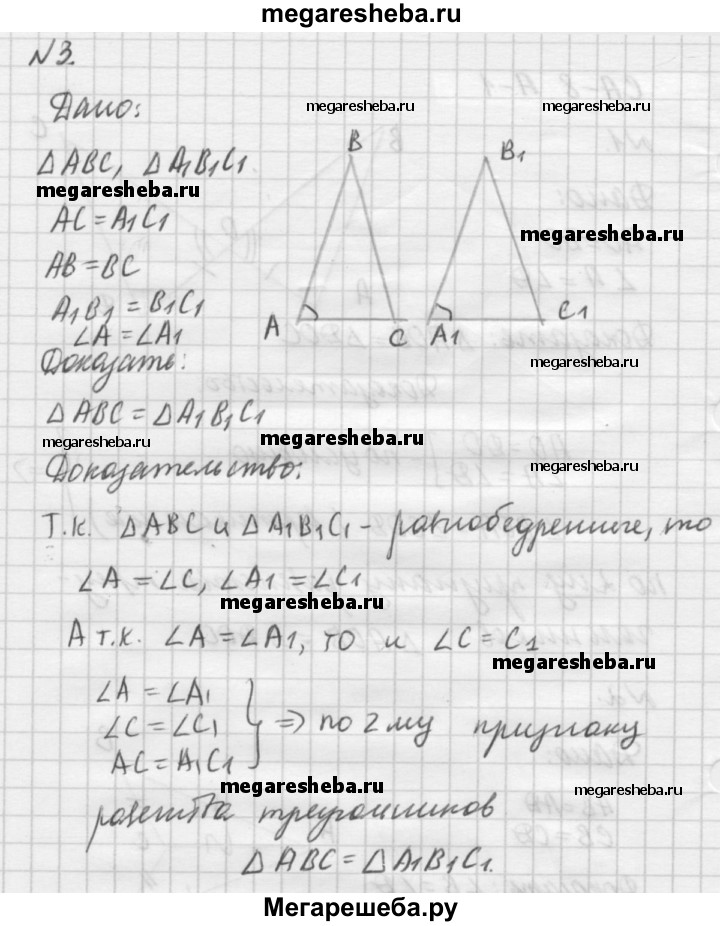 megaresheba.ru
N3.
Дано:
megaresheba.ru
megaresheba.ru
B
B1
△ABC, △A1B1C1.
megaresheba.ru
AC = A1C1
megaresheba.ru
AB = BC
A1B1 = B1C1
A
C
A1
C1
∠A = ∠A1
Доказать:
megaresheba.ru
△ABC = △A1B1C1
megaresheba.ru
megaresheba.ru
Доказательство:
megaresheba.ru
Т.к. △ABC и △A1B1C1 - равнобедренные, то
∠A = ∠C, ∠A1 = ∠C1
megaresheba.ru
А т.к. ∠A = ∠A1, то и ∠C = C1
megaresheba.ru
∠A = ∠A1
∠C = ∠C1 } ⇒ по 2му признаку
AC = A1C1
megaresheba.ru
megaresheba.ru
равенства треугольников
△ABC = △A1B1C1.
Мегарешеба.ру